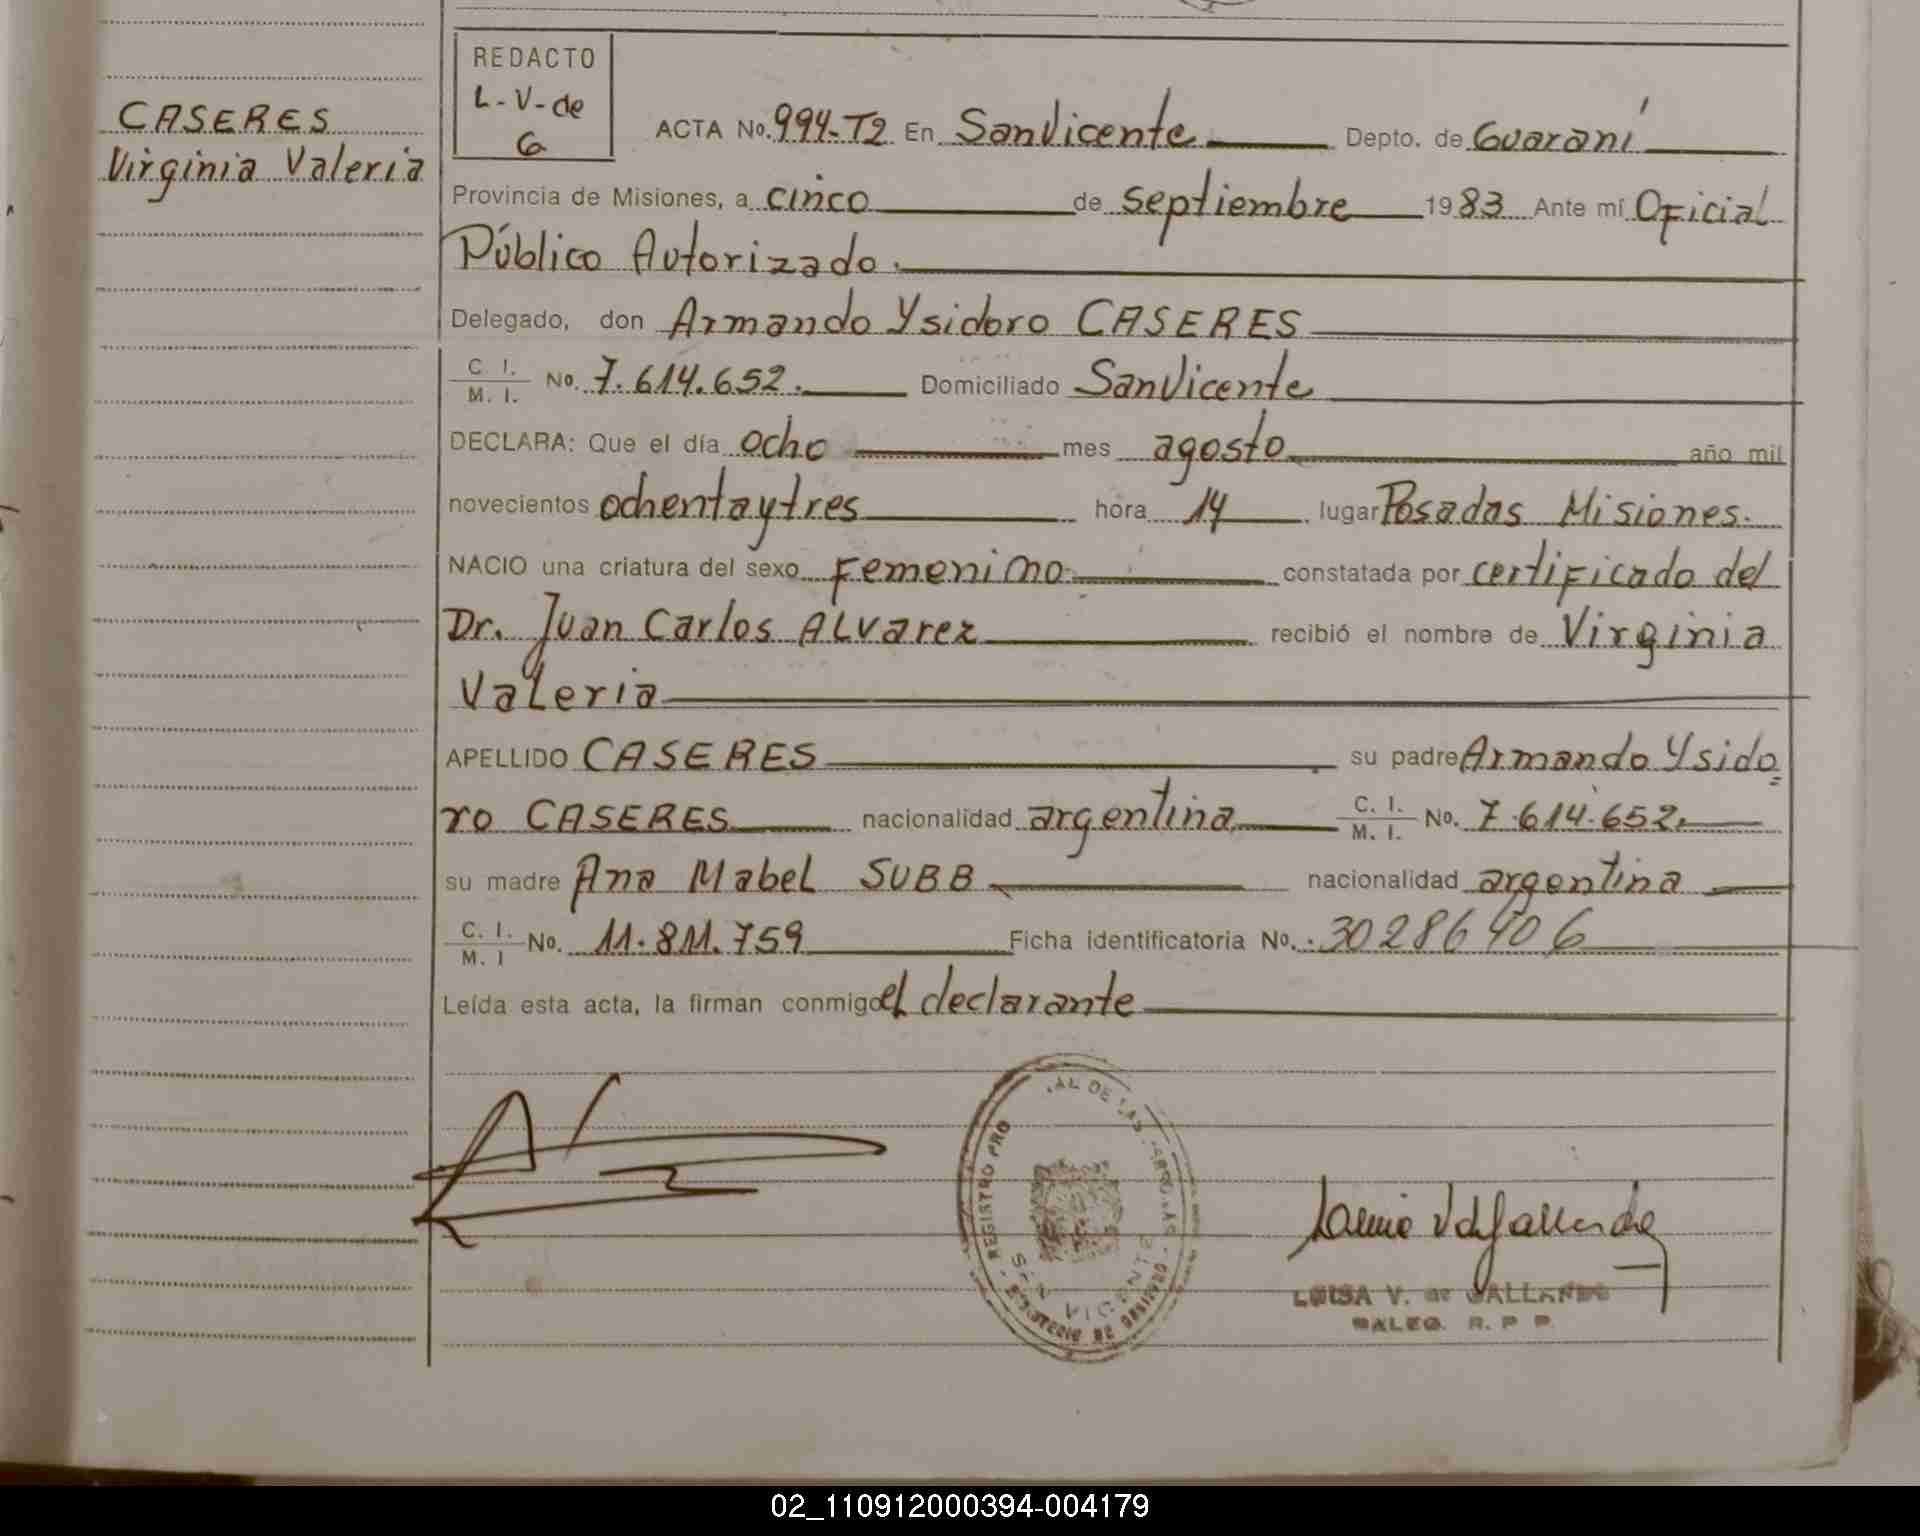 CASERES
Virginia Valeria
REDACTO
L-V-de
G
ACTA No. 994-T2 En San Vicente Depto. de Guaraní
Provincia de Misiones, a cinco de septiembre 1983 Ante mí Oficial
Público Autorizado.
Delegado, don Armando Ysidoro CASERES
C. I.
M. I. No. 7.614.652. Domiciliado San Vicente
DECLARA: Que el día ocho mes agosto año mil
novecientos ochentaytres hora 14 lugar Posadas Misiones.
NACIO una criatura del sexo Femenino constatada por certificado del
Dr. Juan Carlos ALVarez recibió el nombre de Virginia
Valeria
APELLIDO CASERES su padre Armando Ysido=
ro CASERES nacionalidad argentina C. I.
M. I. No. 7.614.652.
su madre Ana Mabel SUBB nacionalidad argentina
C. I.
M. I No. 11.811.759 Ficha identificatoria No. 30286406
Leída esta acta, la firman conmigo el declarante
REGISTRO PRO AL DE LAS
MINISTERIO DE GOBIERNO
SAN VICENTE
LUISA V. de GALLARDO
DALEG. R. P. P.
02_110912000394-004179